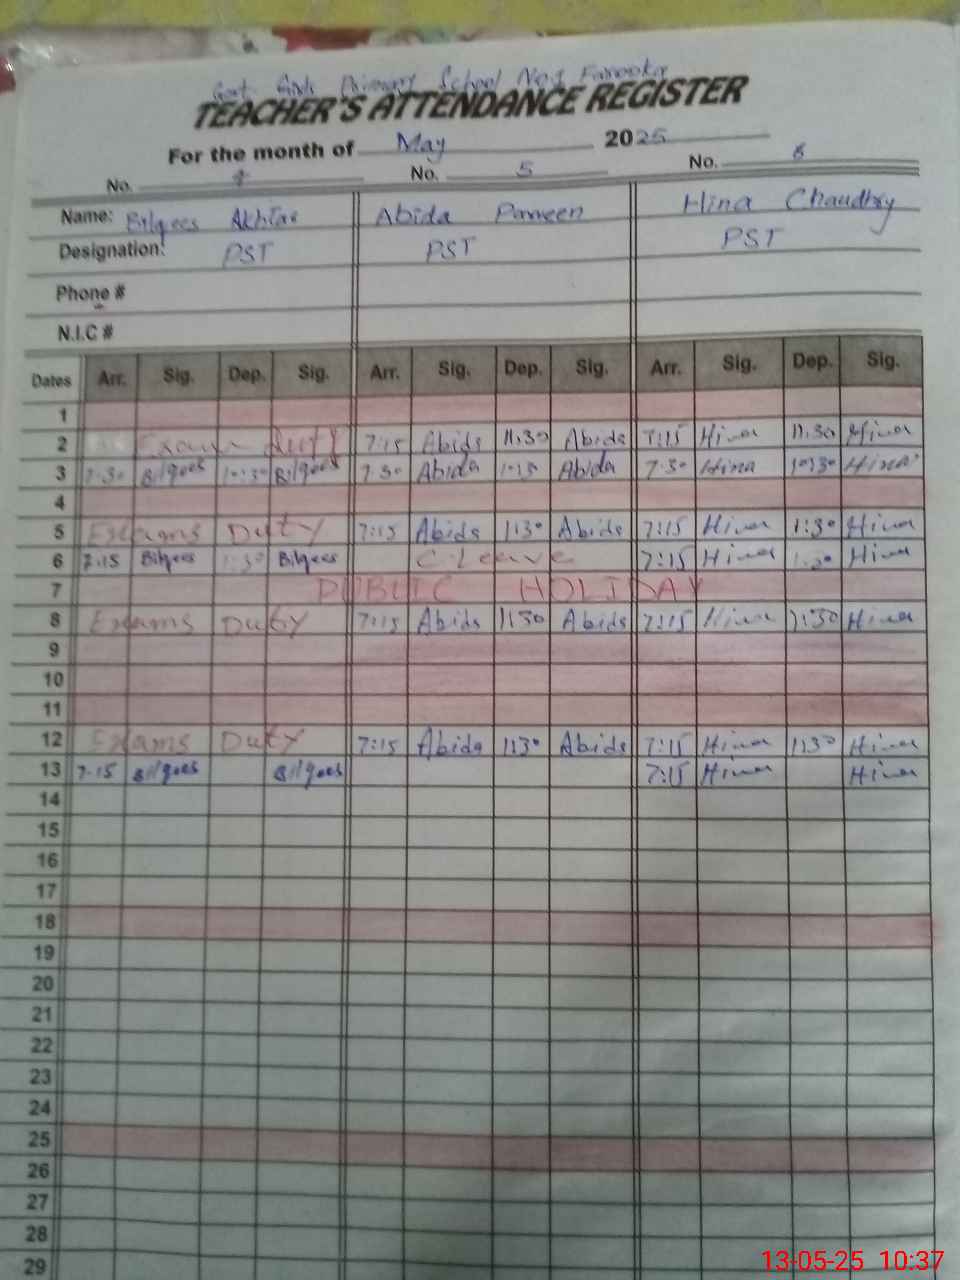 Govt Girls Primary School No 1 Farooka
TEACHER'S ATTENDANCE REGISTER
For the month of May 2025
No. 4 No. 5 No. 6
Name: Bilqees Akhtar Abida Parveen Hina Chaudhry
Designation: PST PST PST
Phone #
N.I.C #
Dates Arr. Sig. Dep. Sig. Arr. Sig. Dep. Sig. Arr. Sig. Dep. Sig.
1
2 Exam Duty 7:15 Abida 11.30 Abida 7:15 Hina 11.30 Hina
3 7.30 Bilqees 10:30 Bilqees 7.30 Abida Abida 7.30 Hina 10:30 Hina
4
5 Exams Duty 7:15 Abida 1:30 Abida 7:15 Hina 1:30 Hina
6 7:15 Bilqees 1:30 Bilqees C-Leave 7:15 Hina 1:30 Hina
7 PUBLIC HOLIDAY
8 Exams Duty 7:15 Abida 1:30 Abida 7:15 Hina 1:30 Hina
9
10
11
12 Exams Duty 7:15 Abida 1:30 Abida 7:15 Hina 1:30 Hina
13 7.15 Bilqees Bilqees 7:15 Hina Hina
14
15
16
17
18
19
20
21
22
23
24
25
26
27
28
29
13-05-25 10:37